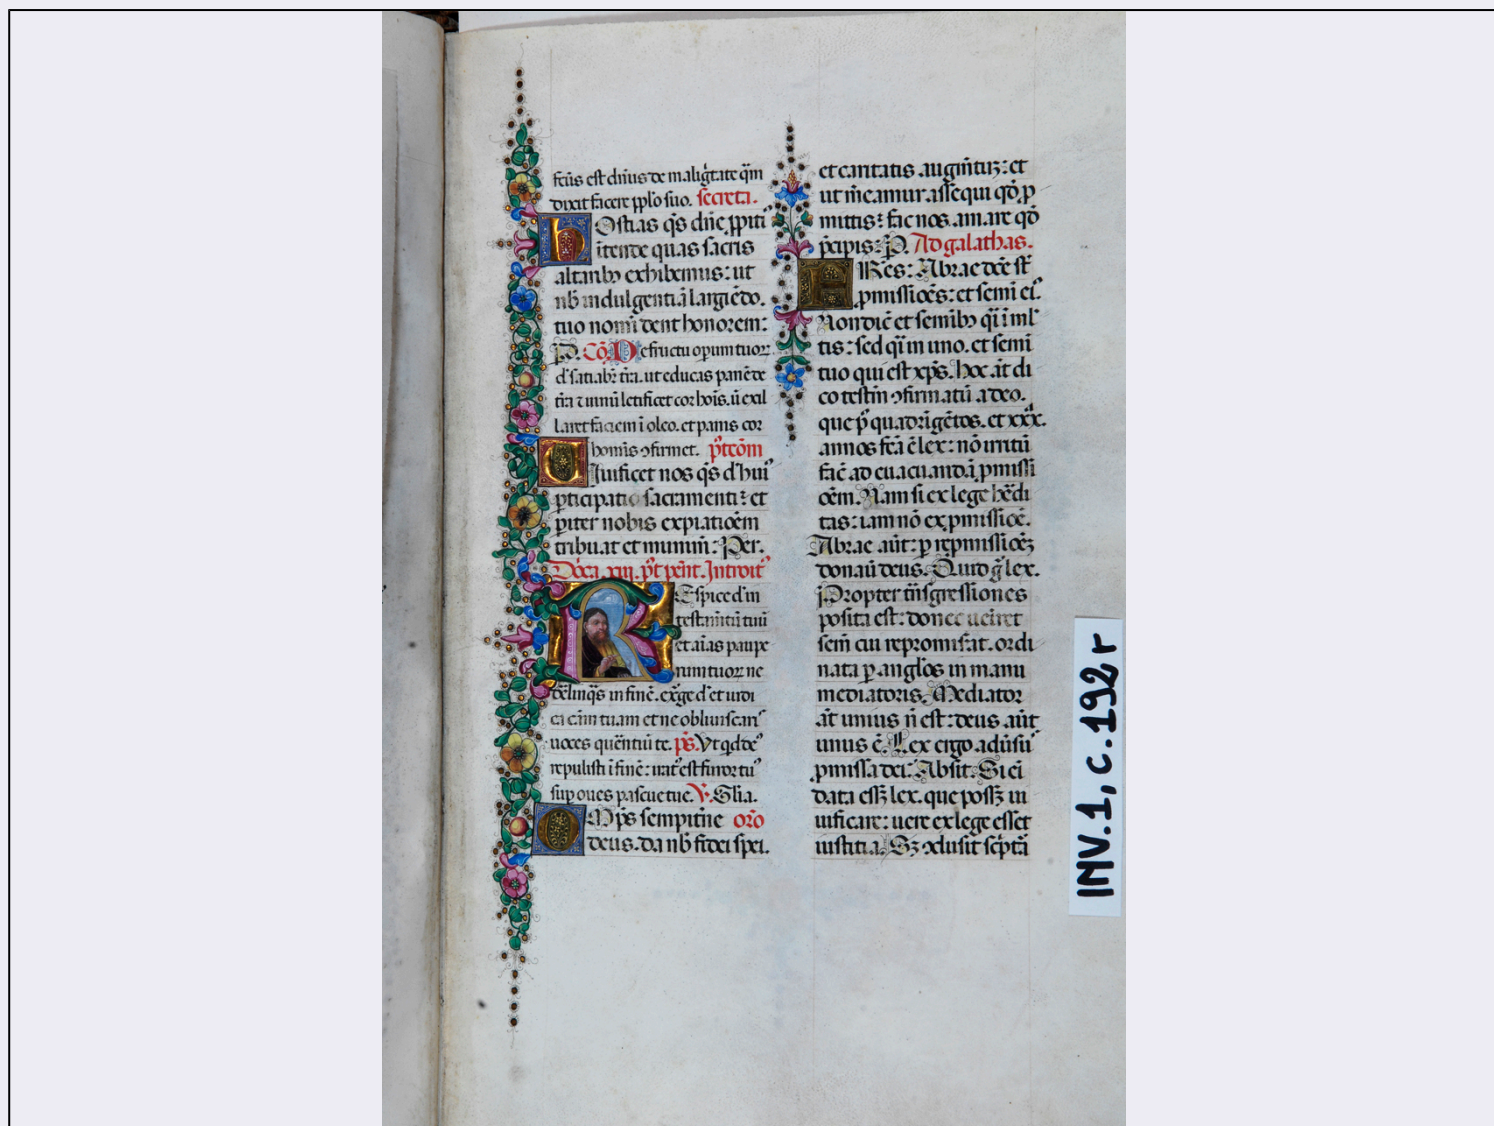 fcũs est dñius de maligtate qm̃
dixit facere pplo suo. secreta.
hOstias qs dñe ppiti
itende quas sacris
altarib exhibemus: ut
nb indulgentiã largiẽdo.
tuo nomi dent honorem:
p. D. Cõ. De fructu opum tuor
d satiabr tr̃a. ut educas panẽ de
tr̃a z uinũ letificet cor hois. ũ exil
laret faciem i oleo. et panis cor
hominis ꝯfirmet. p'tcõm
UJuificet nos qs d' hui'
pticipatio sacramenti: et
piter nobis expiatiõem
tribuat et munim: Per.
Dõca. xiij. p't pent. Introit'
REspice dñ in
testamtũ tuũ
et aĩas paupe
rum tuor ne
delinqs in finẽ. exge d' et iudi
ca cãm tuam et ne obliuiscar
uoces querentiũ te. ps. Vt qd de'
repulisti i finẽ: irat' est furor tu'
sup oues pascue tue. V. Glia.
OMps sempitne orõ
deus. da nb fidei spei.
et caritatis augmtuz: et
ut meamur assequi qd p
mittis: fac nos amare qd
pcipis: p. D. Ad galathas.
FRes: Abrae dce st
pmissioes: et semi ei.
Non dic et semib qi i ml
tis: sed qi in uno. et semi
tuo qui est xps. hoc at di
co testm ꝯfirmatũ a deo.
que p' quadrigẽtos. et xxx.
annos fca ẽ lex: nõ irritũ
fac ad euacuandã pmissi
oem. Nam si ex lege hedi
tas: iam nõ ex pmissioe.
Abrae aũt: p repmissioez
donauit deus. Quid g lex.
Propter trãsgressiones
posita est: donec ueniret
semẽ cui repromiserat. ordi
nata p anglos in manu
mediatoris. Mediator
aũt unius ñ est: deus aũt
unus ẽ. Lex ergo adusũ
pmissa dei: Absit. Si ei
data essz lex. que possz ui
uificare: uere ex lege esset
iustitia. Sz ꝯclusit scptã
INV.1, c.192r